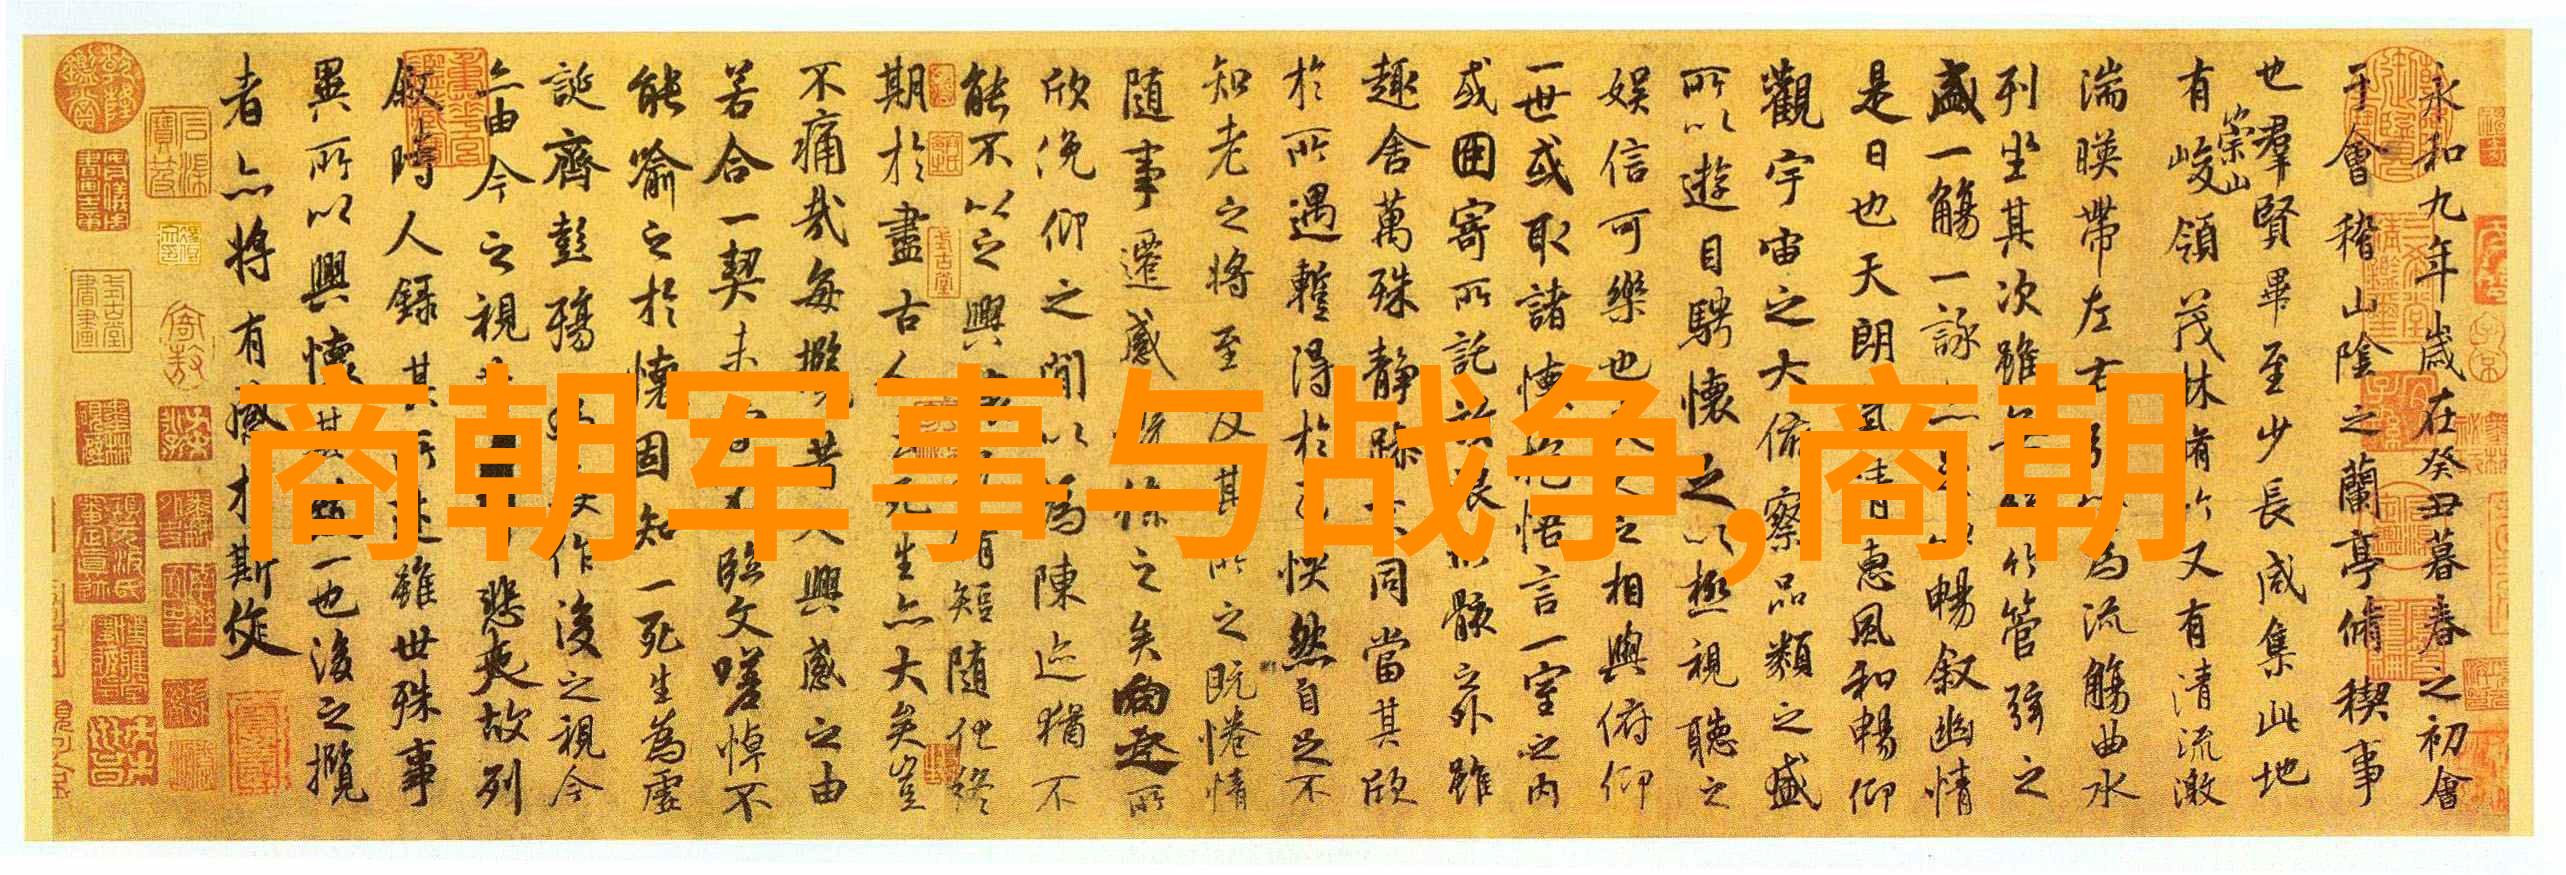 商朝军事与战争,商朝
永和九年歲在癸丑暮春之初會
于會稽山陰之蘭亭脩稧事
也羣賢畢至少長咸集此地
有崇山峻領茂林脩竹又有清流激
湍暎帶左右引以為流觴曲水
列坐其次雖無絲竹管弦之
盛一觴一詠亦足以暢敘幽情
是日也天朗氣清惠風和暢仰
觀宇宙之大俯察品類之盛
所以遊目騁懷足以極視聽之
娛信可樂也夫人之相與俯仰
一世或取諸懷抱悟言一室之內
或因寄所託放浪形骸之外雖
趣舍萬殊靜躁不同當其欣
於所遇蹔得於己怏然自足不
知老之將至及其所之既惓情
隨事遷感慨係之矣向之所
欣俛仰之間以為陳迹猶不
能不以之興懷況脩短隨化終
期於盡古人云死生亦大矣豈
不痛哉每攬昔人興感之由
若合一契未嘗不臨文嗟悼不
能喻之於懷固知一死生為虛
誕齊彭殤為妄作後之視今
亦由今之視昔悲夫故列
敘時人錄其所述雖世殊事
異所以興懷其致一也後之攬
者亦將有感於斯文